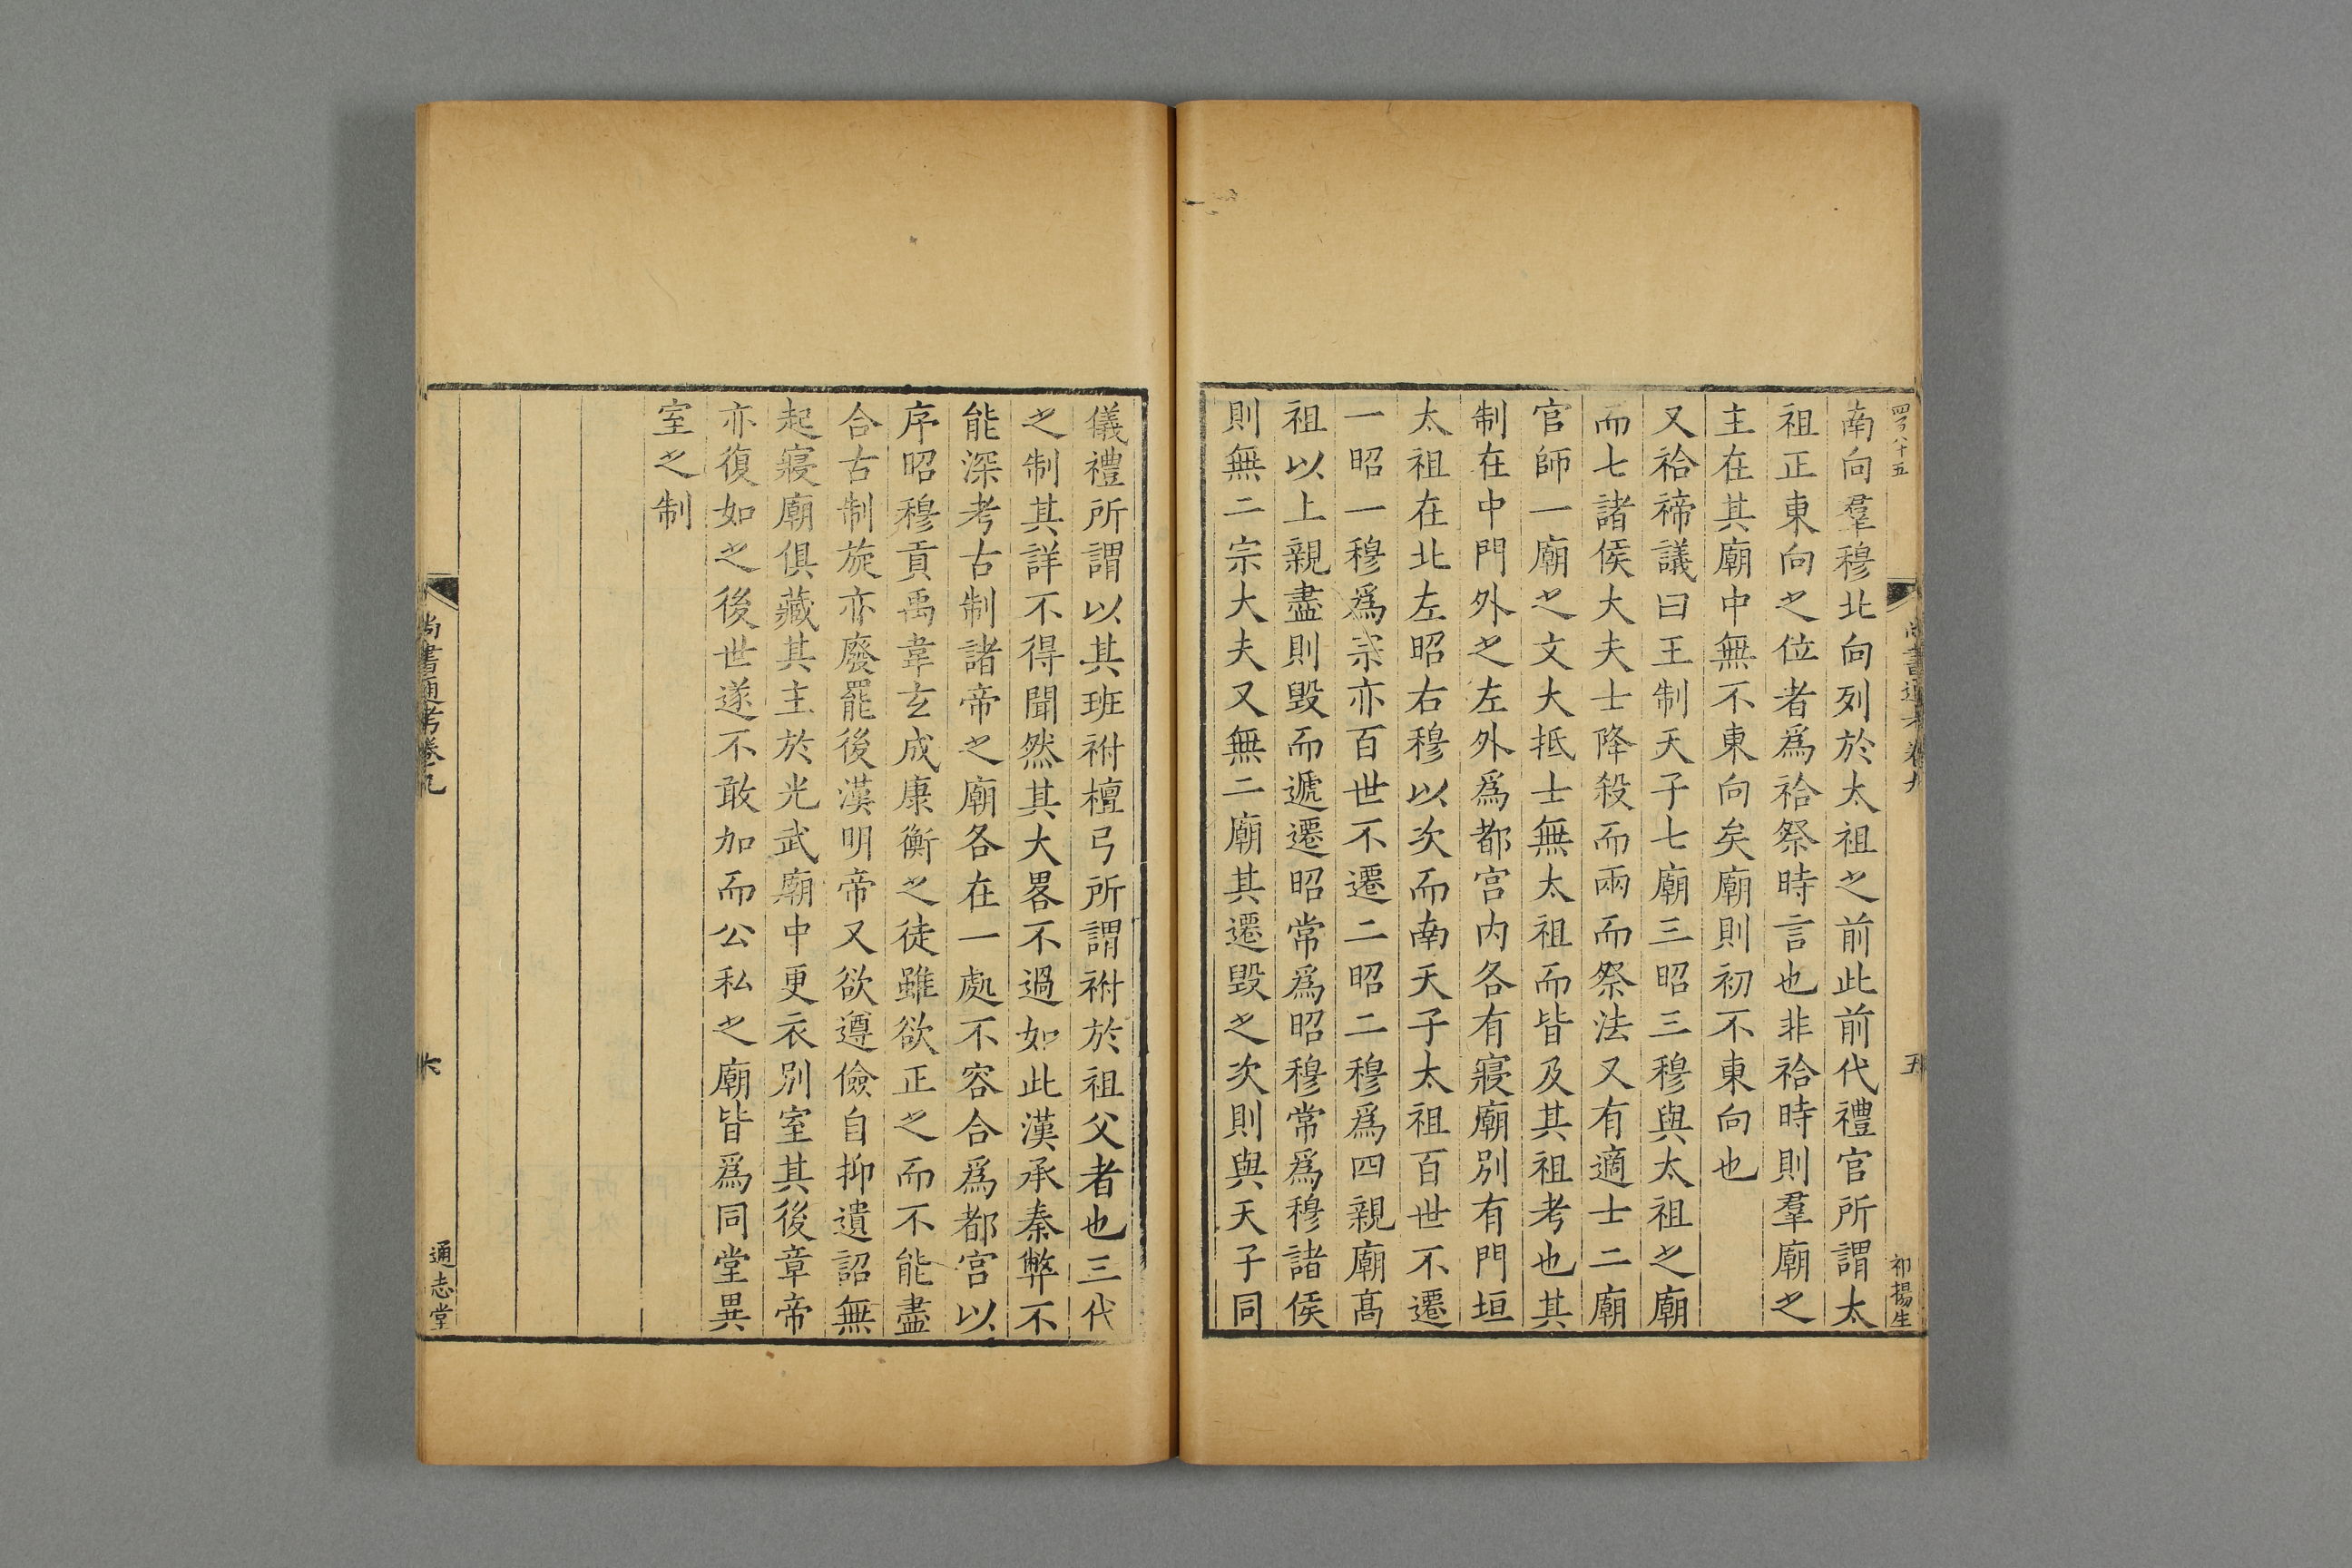 四百八十五
尚書通考卷九
五
祁揚生
南向羣穆北向列於太祖之前此前代禮官所謂太
祖正東向之位者爲祫祭時言也非祫時則羣廟之
主在其廟中無不東向矣廟則初不東向也
又祫禘議曰王制天子七廟三昭三穆與太祖之廟
而七諸侯大夫士降殺而兩而祭法又有適士二廟
官師一廟之文大抵士無太祖而皆及其祖考也其
制在中門外之左外爲都宮内各有寢廟別有門垣
太祖在北左昭右穆以次而南天子太祖百世不遷
一昭一穆爲宗亦百世不遷二昭二穆爲四親廟髙
祖以上親盡則毀而遞遷昭常爲昭穆常爲穆諸侯
則無二宗大夫又無二廟其遷毀之次則與天子同
儀禮所謂以其班祔檀弓所謂祔於祖父者也三代
之制其詳不得聞然其大畧不過如此漢承秦弊不
能深考古制諸帝之廟各在一處不容合爲都宮以
序昭穆貢禹韋玄成康衡之徒雖欲正之而不能盡
合古制旋亦廢罷後漢明帝又欲遵儉自抑遺詔無
起寢廟俱藏其主於光武廟中更衣別室其後章帝
亦復如之後世遂不敢加而公私之廟皆爲同堂異
室之制
尚書通考卷九
六
通志堂